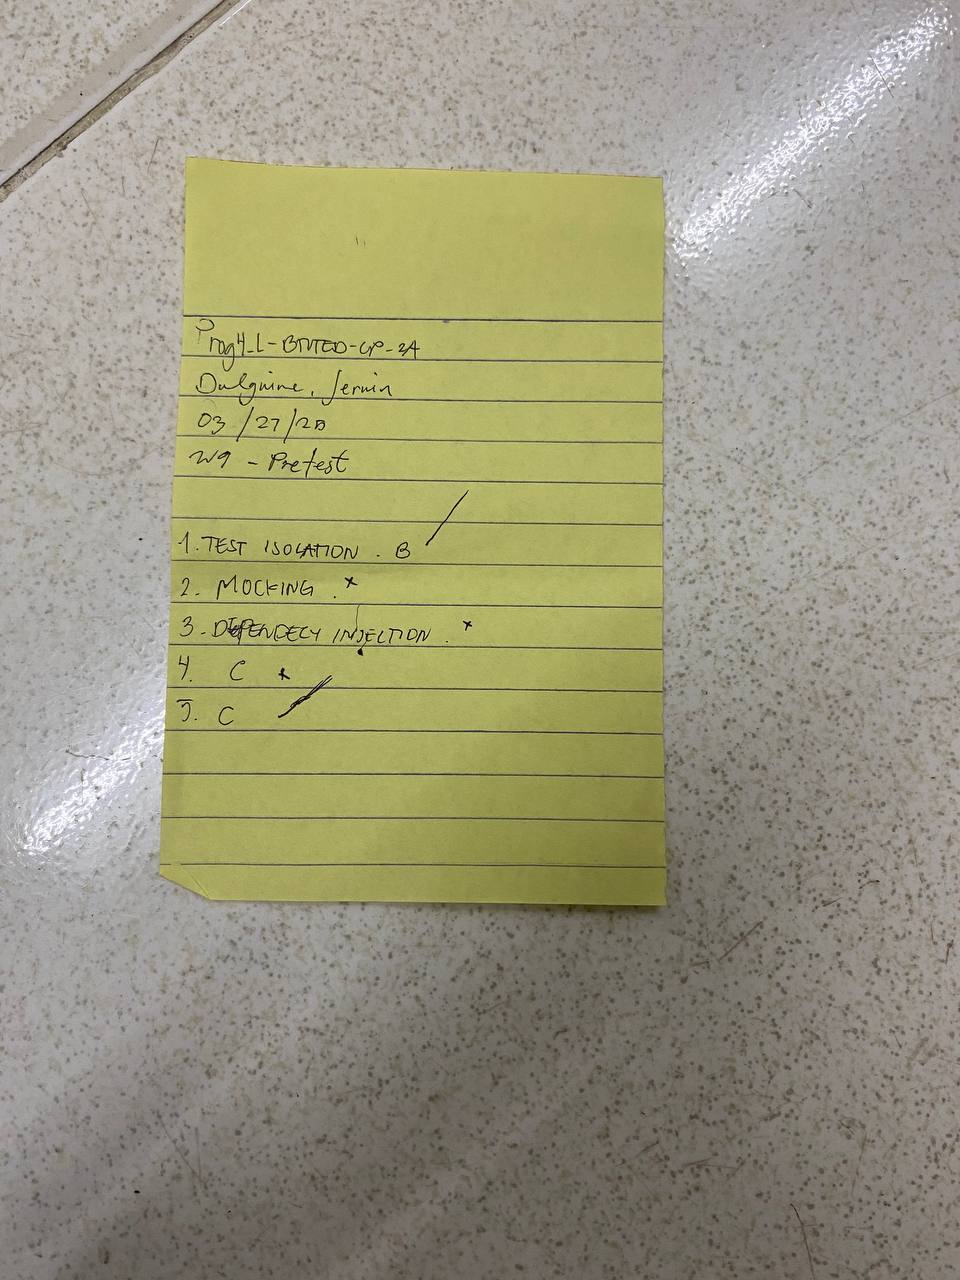 Prog4_L-BTVTED-CP-3A
Dulguime, Jerwin
03/27/20
W9 - Pretest
1. TEST ISOLATION. B
2. MOCKING.
3. DEPENDECY INJECTION.
4. C
5. C